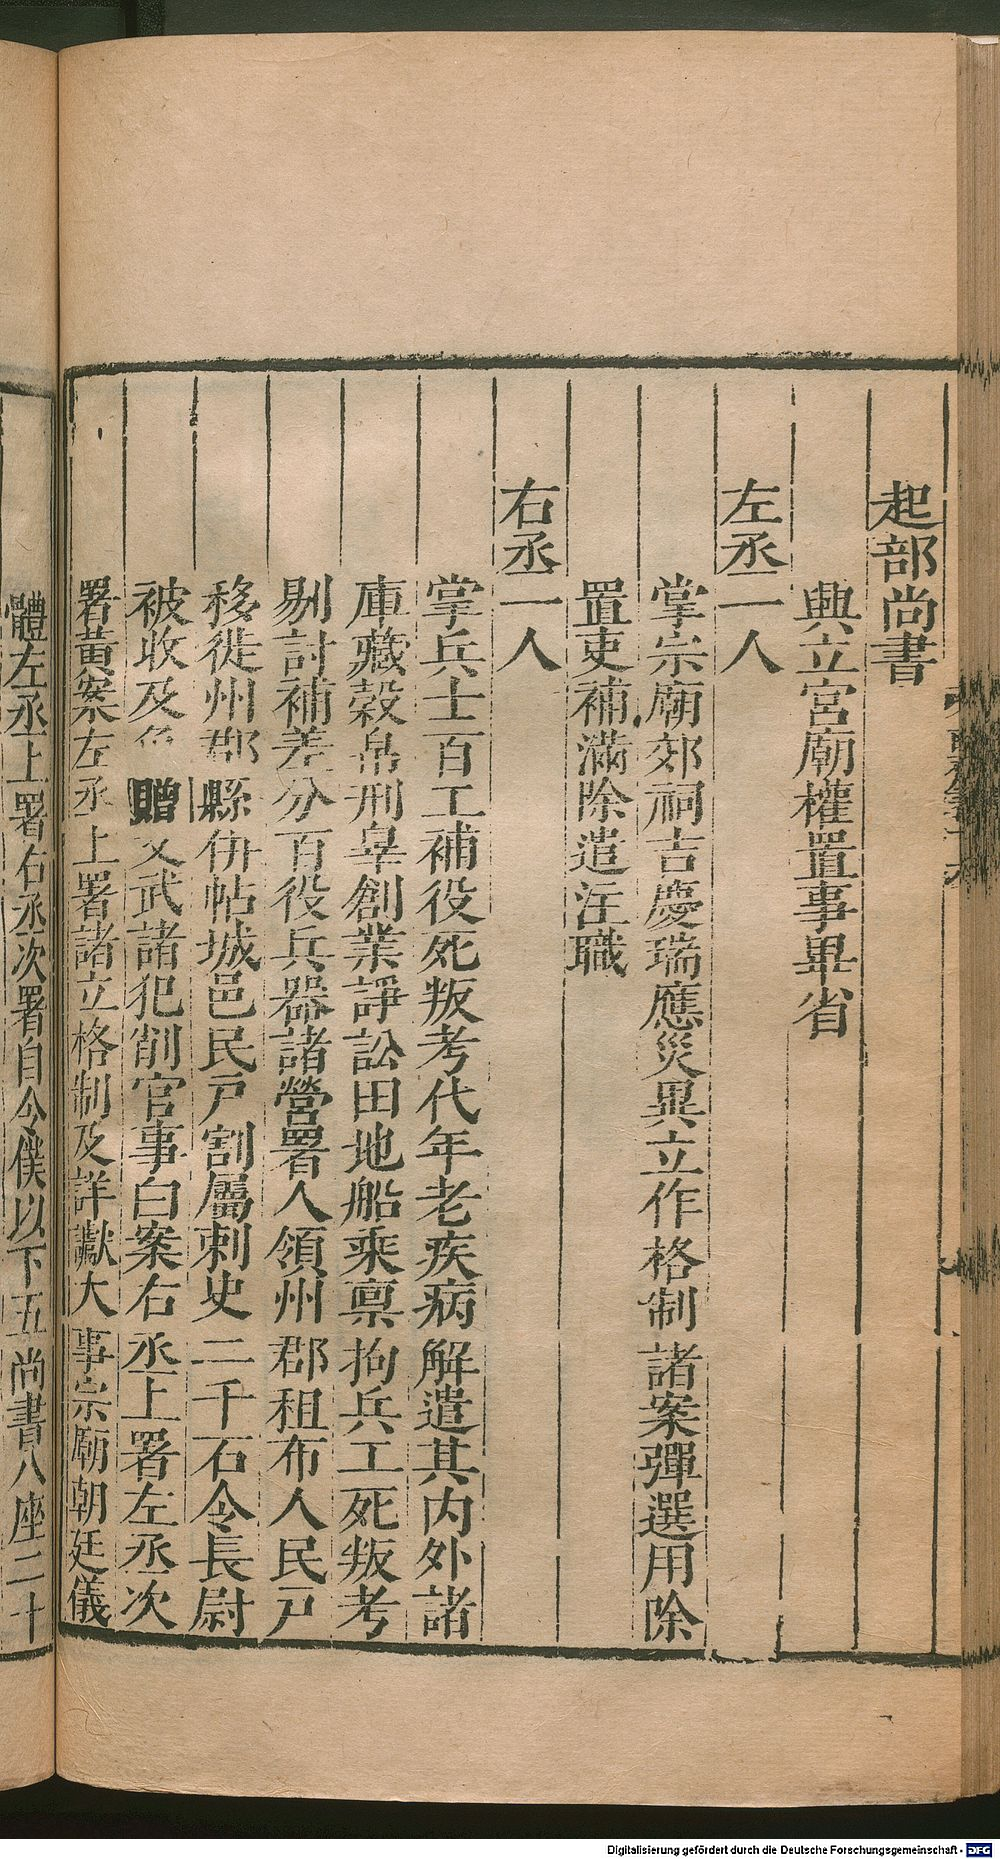 起部尚書
興立宮廟權置事畢省
左丞一人
掌宗廟郊祠吉慶瑞應災異立作格制諸案彈選用除
置吏補滿除遣注職
右丞一人
掌兵士百工補役死叛考代年老疾病解遣其内外諸
庫藏穀帛刑辠創業諍訟田地船乘禀拘兵工死叛考
剔討補差分百役兵器諸營署人領州郡租布人民戸
移徙州郡縣併帖城邑民戸割屬刺史二千石令長尉
被收及免贈文武諸犯削官事白案右丞上署左丞次
署黃案左丞上署諸立格制及詳讞大事宗廟朝廷儀
體左丞上署右丞次署自令僕以下五尚書八座二十
Digitalisierung gefördert durch die Deutsche Forschungsgemeinschaft - DFG